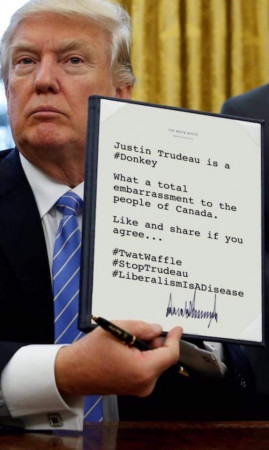 THE WHITE HOUSE
Justin Trudeau is a
#Donkey
What a total
embarrassment to the
people of Canada.
Like and share if you
agree...
#TwatWaffle
#StopTrudeau
#LiberalismIsADisease